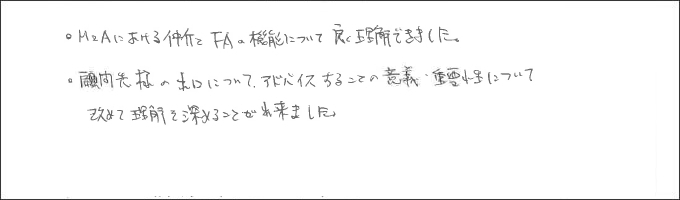 。M&Aにおける仲介とFAの機能について良く理解できました。
。顧問先様の出口について、アドバイスすることの意義・重要性について
改めて理解を深めることが出来ました。